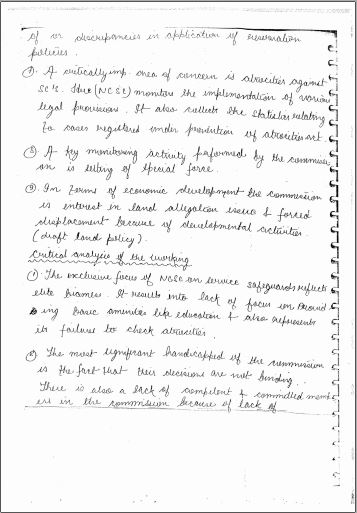 of or discrepancies in application of reservation
policies.
⑦. A critically imp. area of concern is atrocities against
SC's. Here (NCSC) monitors the implementation of various
legal provisions. It also collects the statistics relating
to cases registered under prevention of atrocities act.
⑧. A key monitoring activity performed by the commissi-
on is setting of special force.
⑨. In terms of economic development the commission
is interest in land allegation issues & forced
displacement because of developmental activities.
(draft land policy).
Critical analysis of the working
①. The exclusive focus of NCSC on service safeguards reflects
elite biasness. It results into lack of focus on
ing basic amenities like education & also represents
its failure to check atrocities.
②. The most significant handicapped of the commission
is the fact that their decisions are not binding.
There is also a lack of competent & committed memb
ers in the commission because of lack of